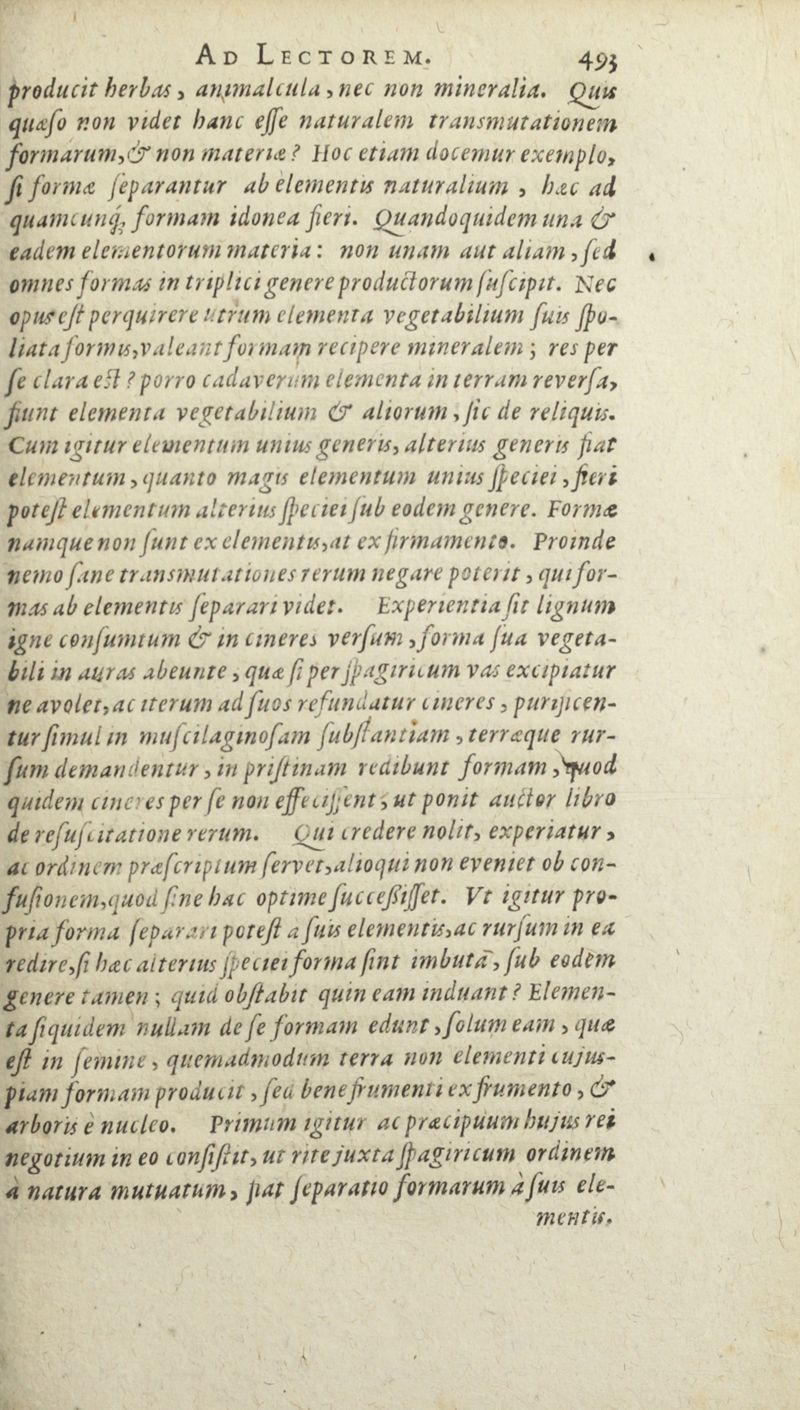 AD LECTOREM. 493
producit herbas, animalcula, nec non mineralia. Quis
quæso non videt hanc esse naturalem transmutationem
formarum, & non materiæ? Hoc etiam docemur exemplo,
si formæ separantur ab elementis naturalium, hæc ad
quamcunq; formam idonea fieri. Quandoquidem una &
eadem elementorum materia: non unam aut aliam, sed
omnes formas in triplici genere productorum suscipit. Nec
opus est perquirere utrum elementa vegetabilium suis spo-
liata formis, valeant formam recipere mineralem; res per
se clara est? porro cadaverum elementa in terram reversa,
fiunt elementa vegetabilium & aliorum, sic de reliquis.
Cum igitur elementum unius generis, alterius generis fiat
elementum, quanto magis elementum unius speciei, fieri
potest elementum alterius speciei sub eodem genere. Formæ
namque non sunt ex elementis, at ex firmamento. Proinde
nemo sane transmutationes rerum negare poterit, qui for-
mas ab elementis separari videt. Experientia sit lignum
igne consumtum & in cineres versum, forma sua vegeta-
bili in auras abeunte, quæ si per spagiricum vas excipiatur
ne avolet, ac iterum ad suos refundatur cineres, purificen-
tur simul in muscilaginosam substantiam, terræque rur-
sum demandentur, in pristinam redibunt formam, quod
quidem cineres per se non effecissent, ut ponit auctor libro
de resuscitatione rerum. Qui credere nolit, experiatur,
ac ordinem præscriptum servet, alioqui non eveniet ob con-
fusionem, quod sine hac optime successisset. Vt igitur pro-
pria forma separari potest a suis elementis, ac rursum in ea
redire, si hæc alterius speciei forma sint imbuta, sub eodem
genere tamen; quid obstabit quin eam induant? Elemen-
ta siquidem nullam de se formam edunt, solum eam, quæ
est in semine, quemadmodum terra non elementi cujus-
piam formam producit, sed bene frumenti ex frumento, &
arboris è nucleo. Primum igitur ac præcipuum hujus rei
negotium in eo consistit, ut rite juxta spagiricum ordinem
à natura mutuatum, fiat separatio formarum à suis ele-
mentis.